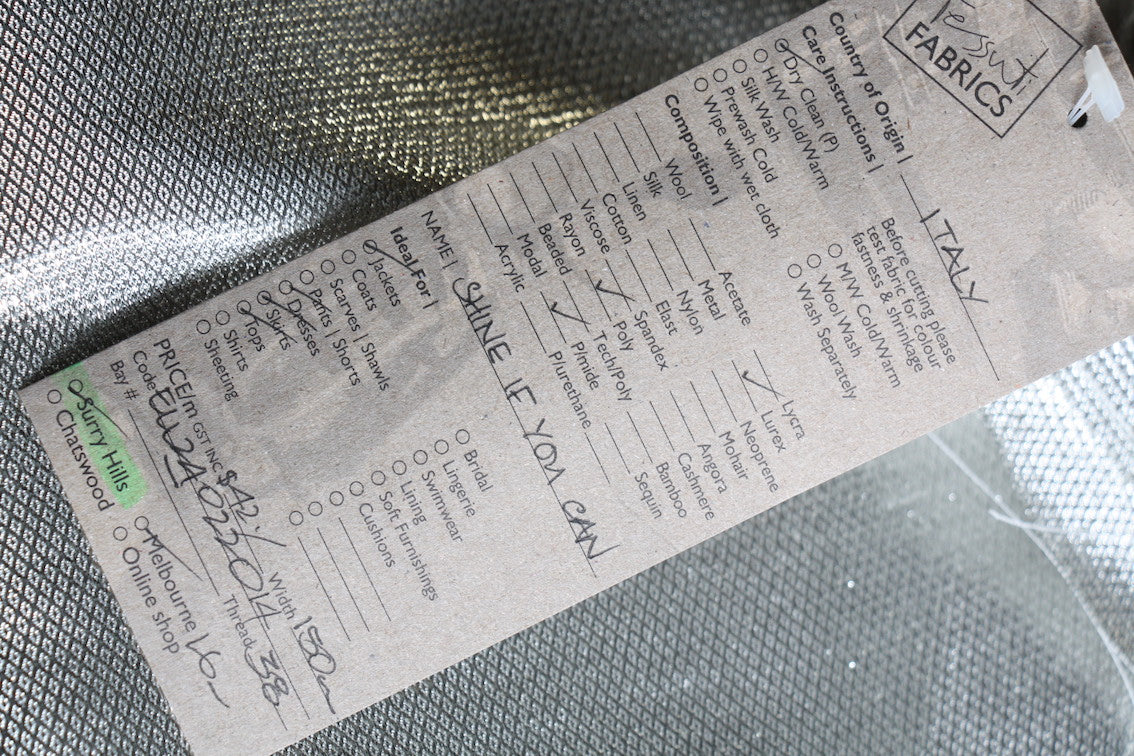 Tessuti
FABRICS
Country of Origin | ITALY
Care Instructions |
Dry Clean (P)
H/W Cold/Warm
Silk Wash
Prewash Cold
Wipe with wet cloth
Before cutting please
test fabric for colour
fastness & shrinkage
M/W Cold/Warm
Wool Wash
Wash Separately
Composition |
Wool
Silk
Linen
Cotton
Viscose
Rayon
Beaded
Modal
Acrylic
Acetate
Metal
Nylon
Elast
Spandex
✓ Poly
Tech/Poly
✓ P/mide
Plurethane
Lycra
✓ Lurex
Neoprene
Mohair
Angora
Cashmere
Bamboo
Sequin
NAME | SHINE IF YOU CAN
Ideal For |
Jackets
Coats
Scarves | Shawls
Pants | Shorts
Dresses
Skirts
Tops
Shirts
Sheeting
Bridal
Lingerie
Swimwear
Lining
Soft Furnishings
Cushions
PRICE/m GST INC $42/ Width 150cm
Code Thread 358
Bay #
Surry Hills
Chatswood
Melbourne
Online shop